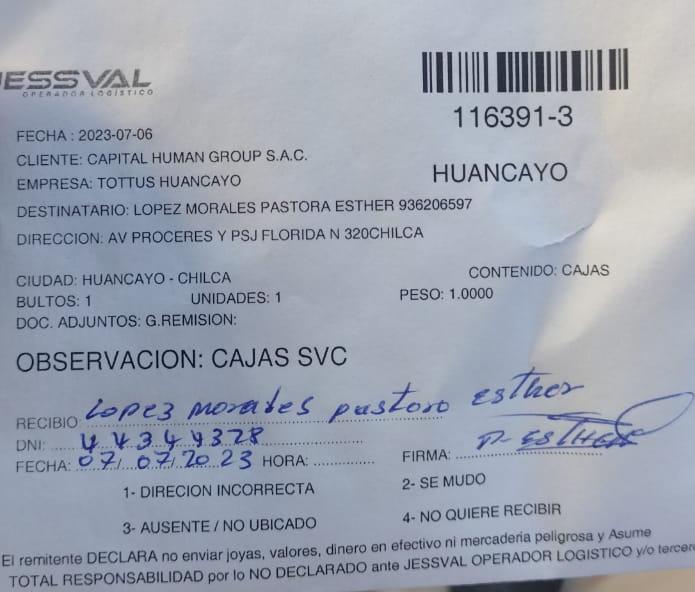 JESSVAL
OPERADOR LOGÍSTICO
116391-3
FECHA : 2023-07-06
CLIENTE: CAPITAL HUMAN GROUP S.A.C.
EMPRESA: TOTTUS HUANCAYO
HUANCAYO
DESTINATARIO: LOPEZ MORALES PASTORA ESTHER 936206597
DIRECCION: AV PROCERES Y PSJ FLORIDA N 320CHILCA
CIUDAD: HUANCAYO - CHILCA CONTENIDO: CAJAS
BULTOS: 1 UNIDADES: 1 PESO: 1.0000
DOC. ADJUNTOS: G.REMISION:
OBSERVACION: CAJAS SVC
RECIBIO: Lopez morales pastora Esther
DNI: 44344328
FECHA: 07/07/2023 HORA: FIRMA: P. ESTHER
1- DIRECION INCORRECTA 2- SE MUDO
3- AUSENTE / NO UBICADO 4- NO QUIERE RECIBIR
El remitente DECLARA no enviar joyas, valores, dinero en efectivo ni mercaderia peligrosa y Asume
TOTAL RESPONSABILIDAD por lo NO DECLARADO ante JESSVAL OPERADOR LOGISTICO y/o tercero